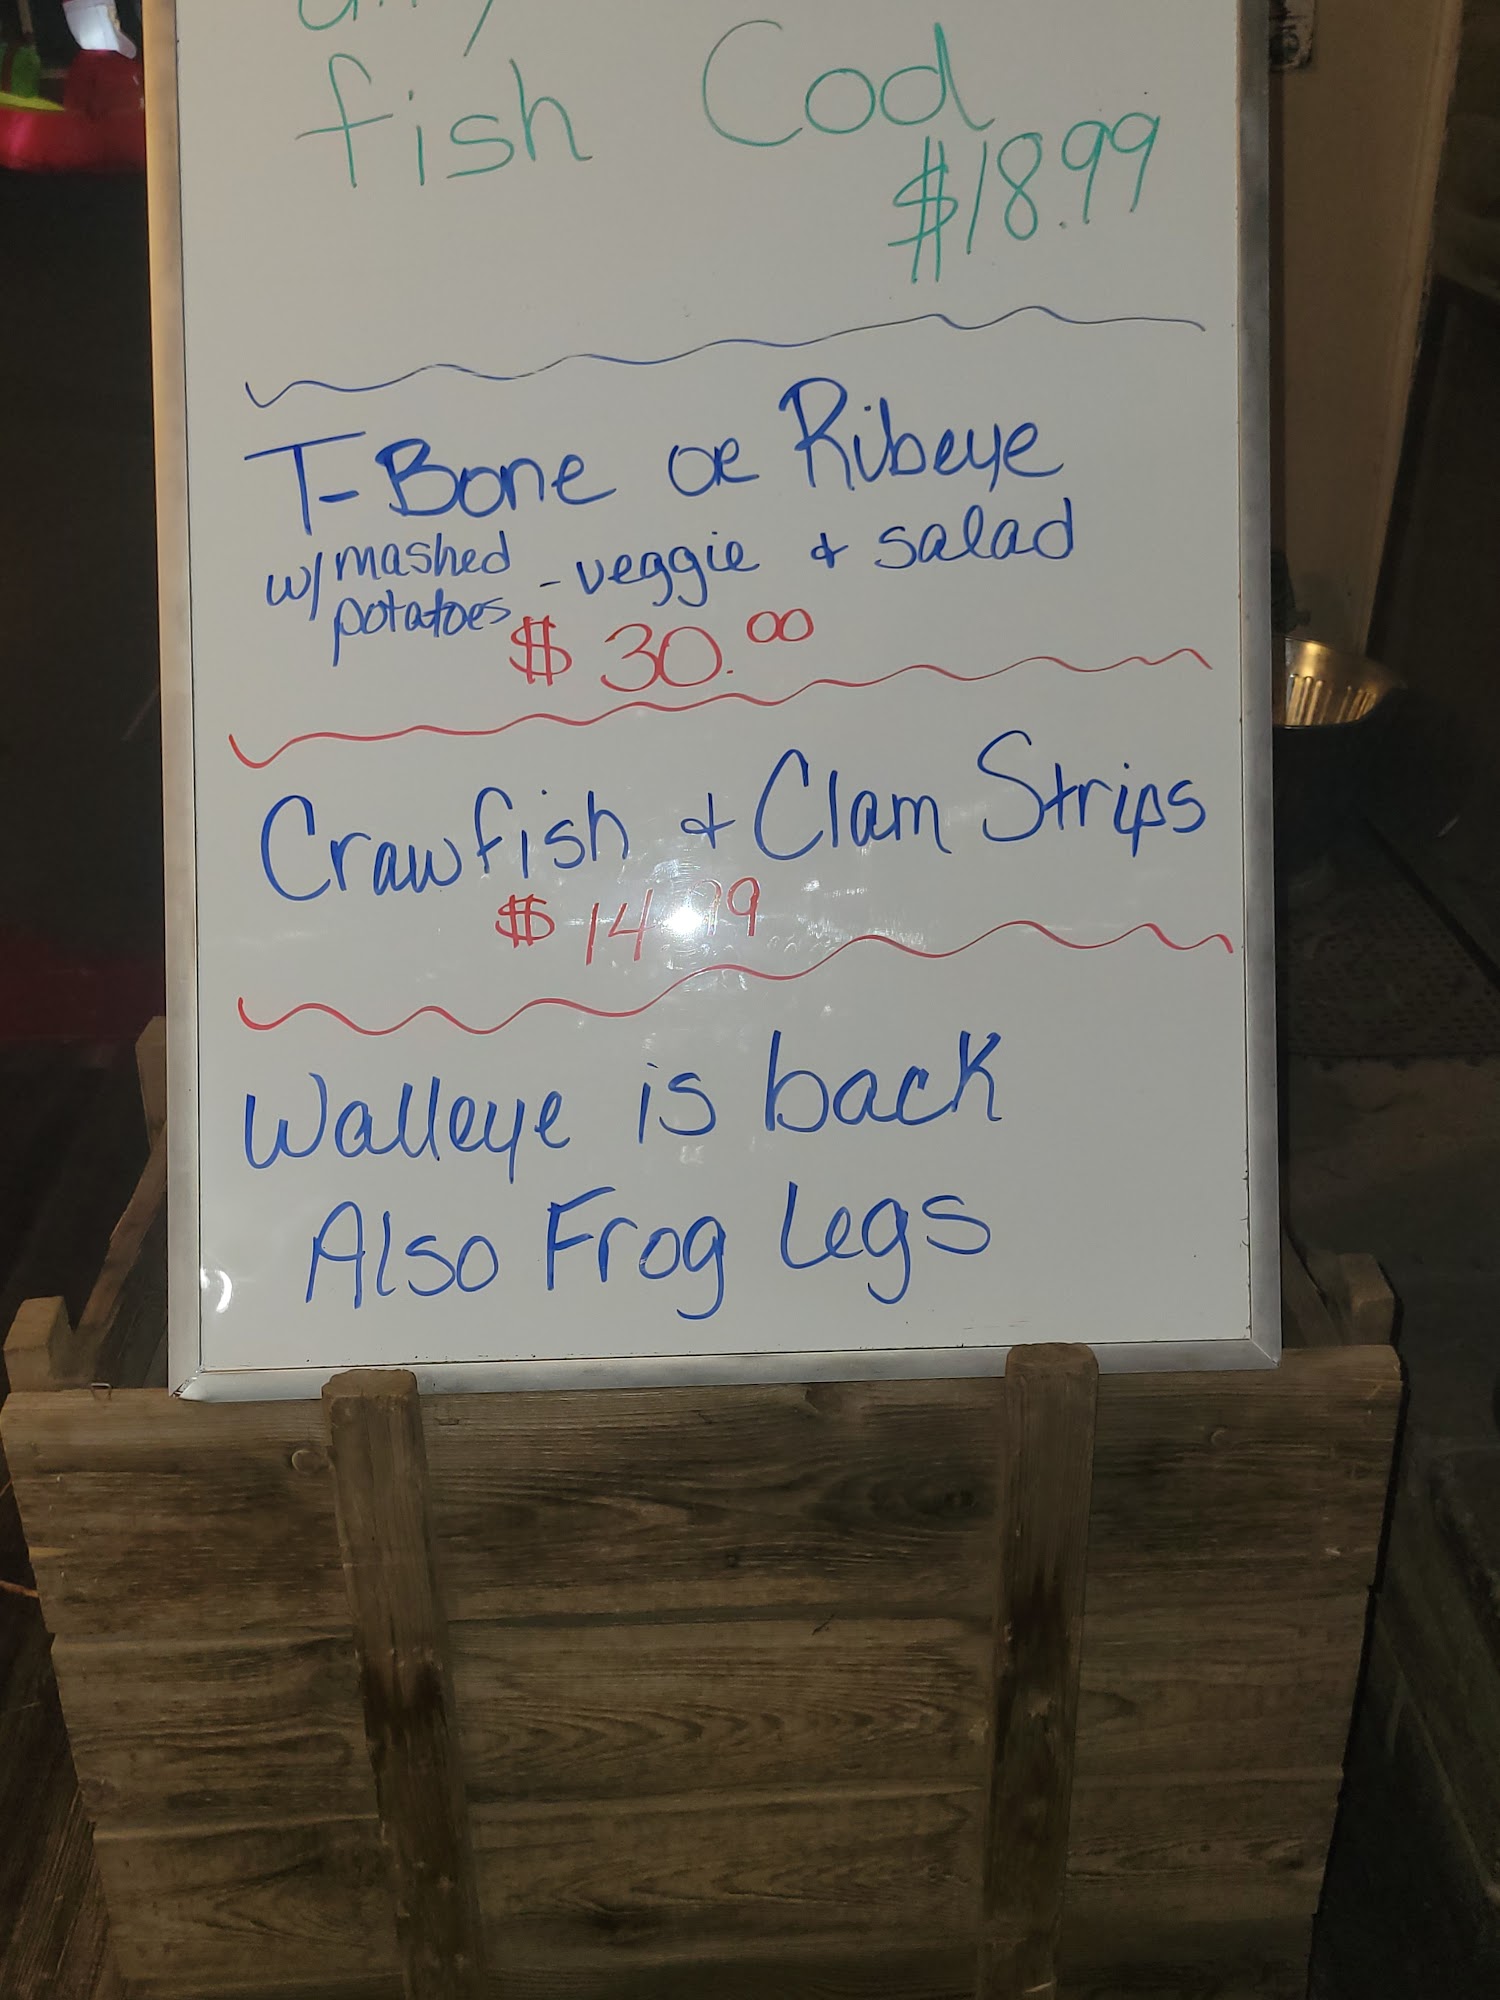 fish Cod
$18.99
T-Bone or Ribeye
w/ mashed potatoes - veggie & salad
$30.00
Crawfish & Clam Strips
$14.99
Walleye is back
Also Frog Legs